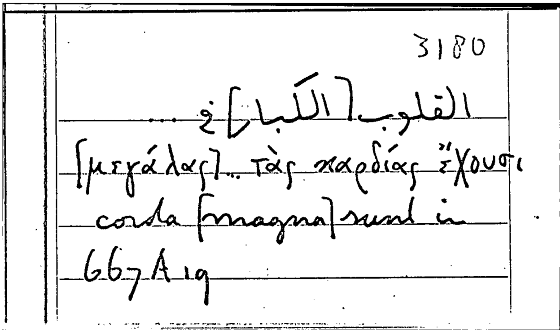 3180
القلوب [الكبار] في ...
[μεγάλας]... τὰς καρδίας ἔχουσι
corda [magna] sunt in
667A19